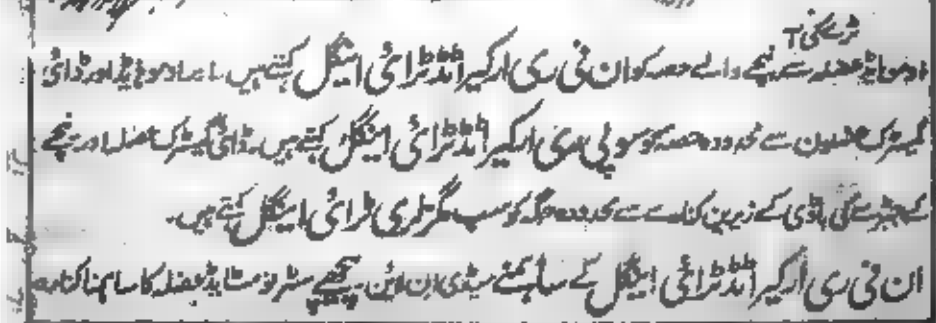 ٹریکی T
اوموہایڈ عضلہ سے نیچے والے حصہ کو ان فی ری ارکیر انڈ ٹرائی اینگل کہتے ہیں۔ اوموہایڈ اور ڈائی
گیسٹرک عضلوں سے محدودہ حصہ کو سوپی ری ارکیر انڈ ٹرائی اینگل کہتے ہیں۔ ڈائی گیسٹرک عضلہ اور نیچے
کے جبڑے کی باڈی کے زیرین کنارے سے محدودہ جگہ کو سب مگزلری ٹرائی اینگل کہتے ہیں۔
ان فی ری ارکیر انڈ ٹرائی اینگل کے سامنے میڈی ان لائن۔ پیچھے سٹرنومسٹایڈ عضلہ کا سامنا کنارہ